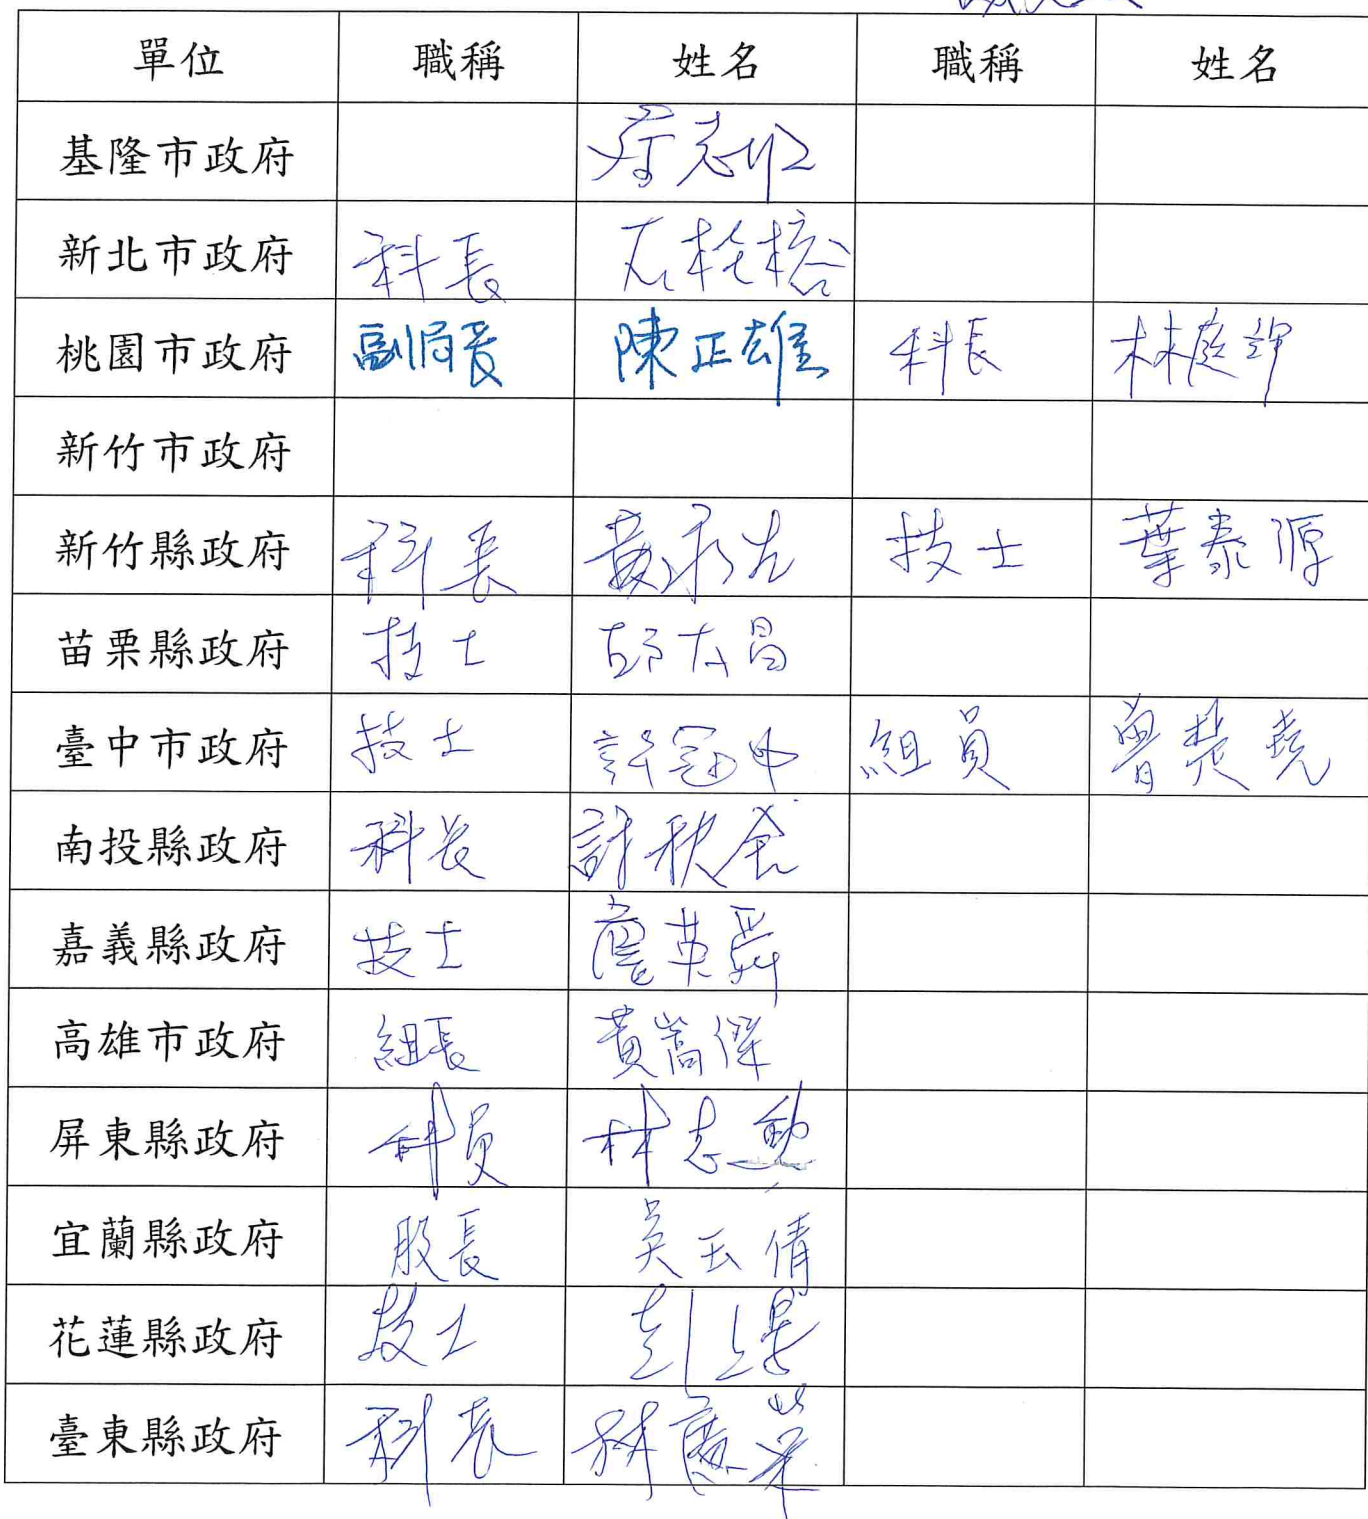 單位 職稱 姓名 職稱 姓名
基隆市政府
新北市政府 科長
桃園市政府 副局長 陳正雄 科長 林庭
新竹市政府
新竹縣政府 科長 黃 技士 葉泰源
苗栗縣政府 技士
臺中市政府 技士 許冠中 組員 曾
南投縣政府 科長 許秋
嘉義縣政府 技士 詹英舜
高雄市政府 組長 黃嵩傑
屏東縣政府 科員 林志
宜蘭縣政府 股長 吳玉倩
花蓮縣政府 技士
臺東縣政府 科長 林